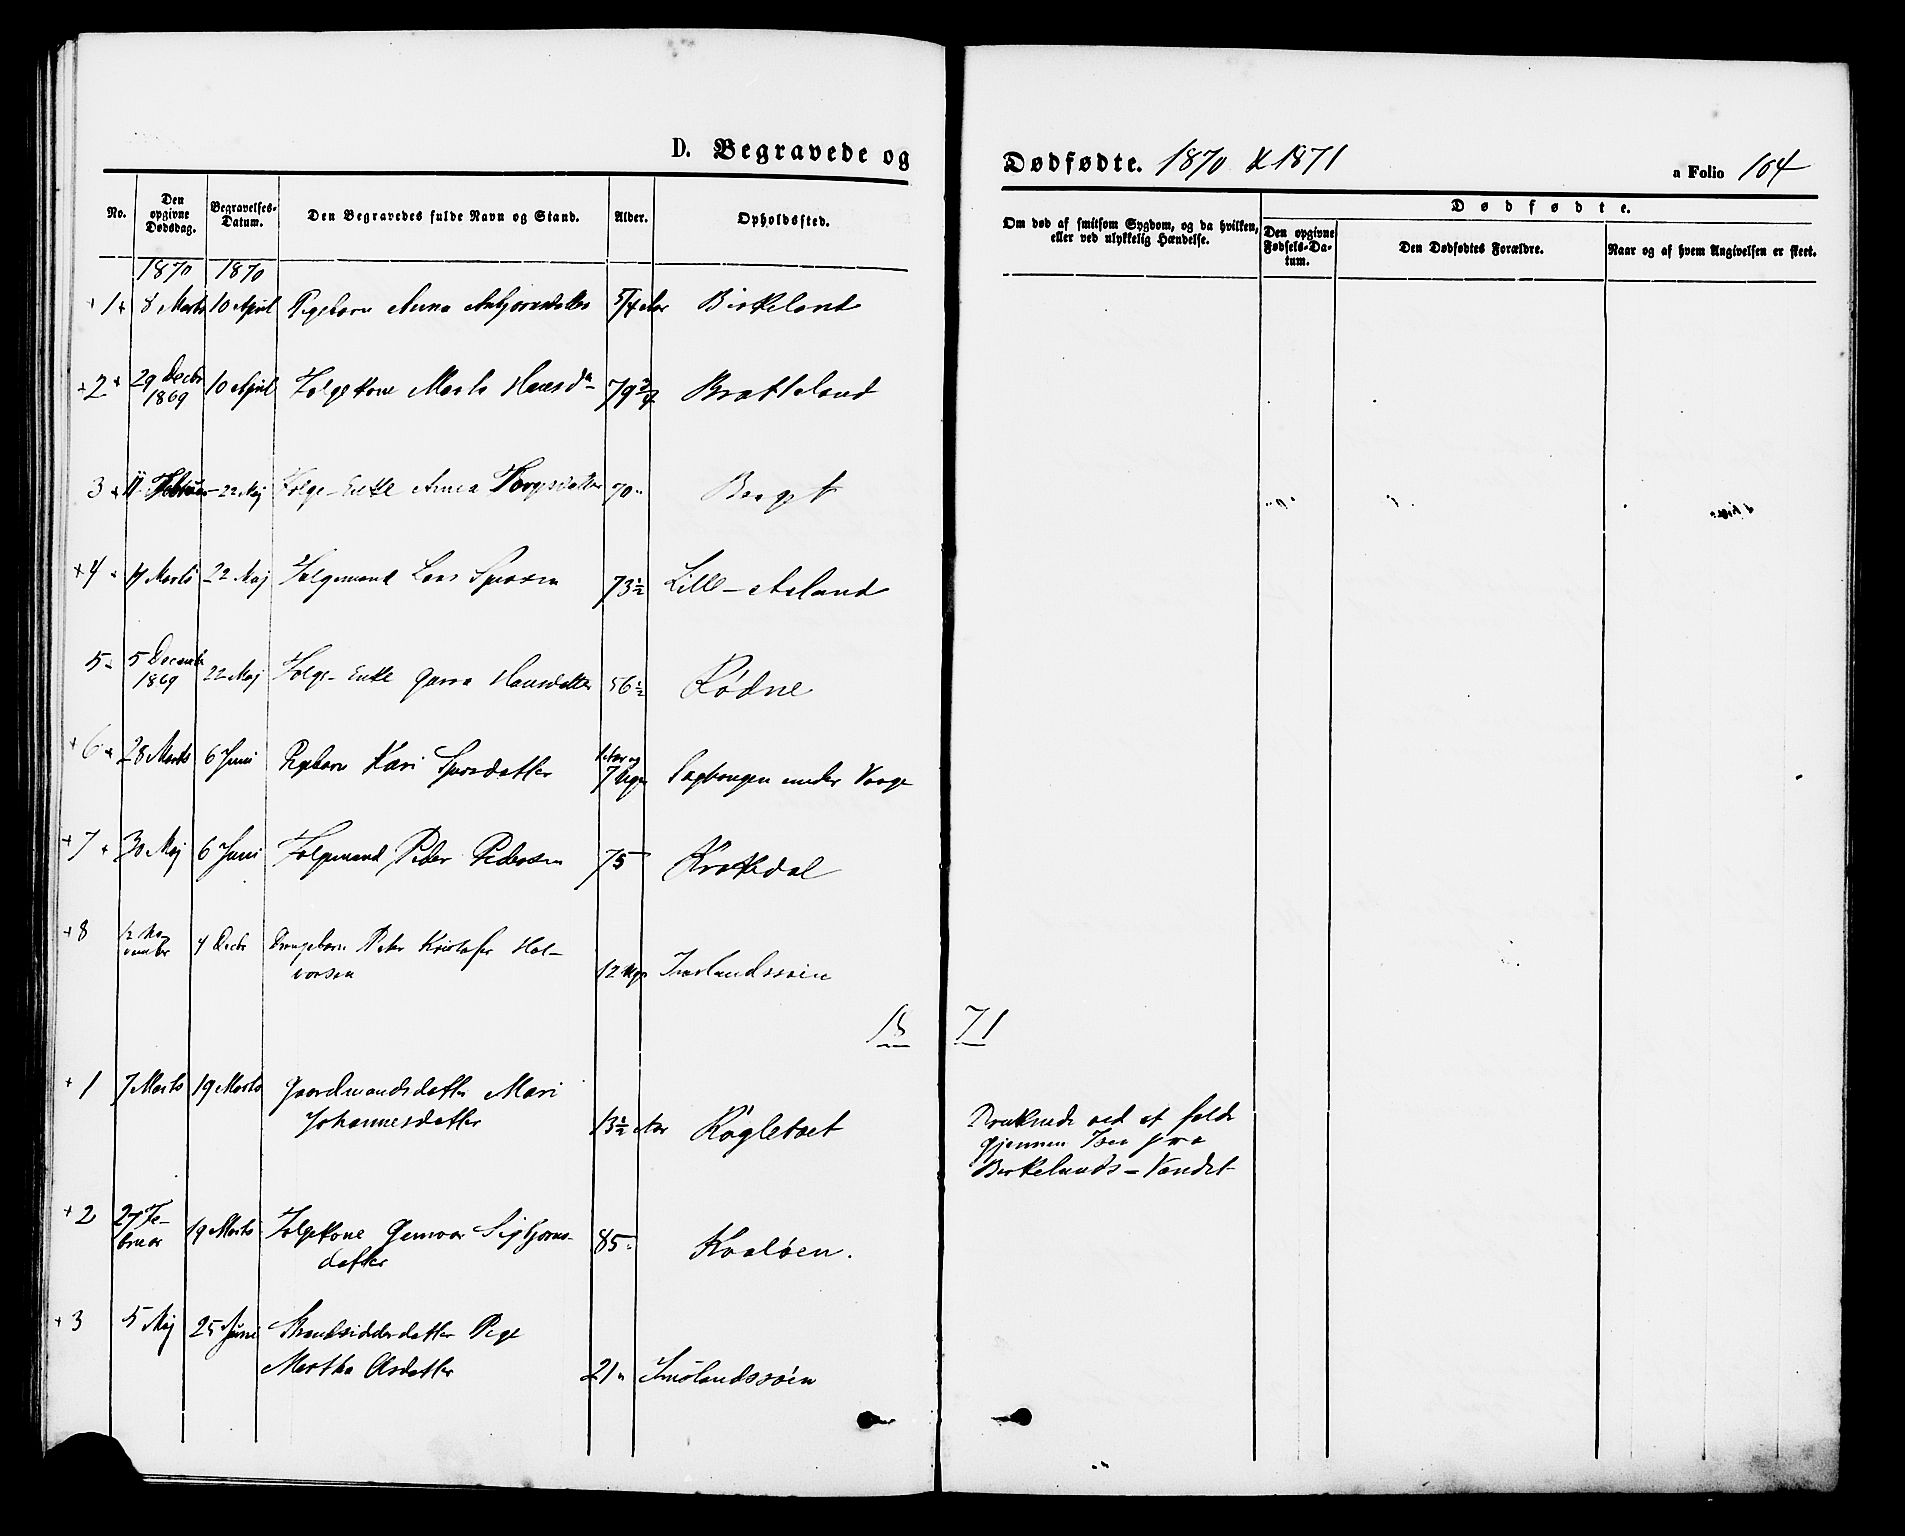 D. Begravede og Dødfødte. 1870 & 1871
a Folio 104
No.
Den opgivne Dødsdag.
Begravelses-Datum.
Den Begravedes fulde Navn og Stand.
Alder.
Opholdssted.
Om død af smitsom Sygdom, og da hvilken, eller ved ulykkelig Hændelse.
Dødfødte.
Den opgivne Fødsels-Datum.
Den Dødfødtes Forældre.
Naar og af hvem Angivelsen er skeet.
1870 1870
+ 1 + 8 Marts 10 April Pigebarn Anna Asbjørnsdatter 5/4 Aar Birkeland
+ 2 + 29 Decbr 1869 10 April Folgekone Marta Hansd. 79 3/4 Bratteland
3 + 11 Februar 22 Maj Folge-Enke Anna 70 "
+ 4 22 Maj Folgemand Lars 73 1/2 Lille-Asland
5 5 Decembr 1869 22 Maj Folge-Enke Hansdatter 56 1/2 Rødne
+ 6 + 28 Marts 6 Juni Pigebarn Kari Sjursdatter 1 Aar og 7 Uger under Vaage
+ 7 + 30 Maj 6 Juni Folgemand Peder Pedersen 75 Krakedal
+ 8 12 November 4 Decbr Drengebarn Peder Kristofer Hal-
vorsen 12 Uger Imslandssøen
18 71
+ 1 7 Marts 19 Marts Gaardmandsdatter Mari
Johannesdatter 13 1/2 Aar Røgletvet Druknede ved at falde
gjennem Isen paa
Birkelands-Vandet
+ 2 27 Februar 19 Marts Folgekone Gunvor Sigbjørns-
datter 85 " Kvaløen.
+ 3 5 Maj 25 Juni Strandsidderdatter Pige
Martha Olsdatter 21 " Imslandssøen